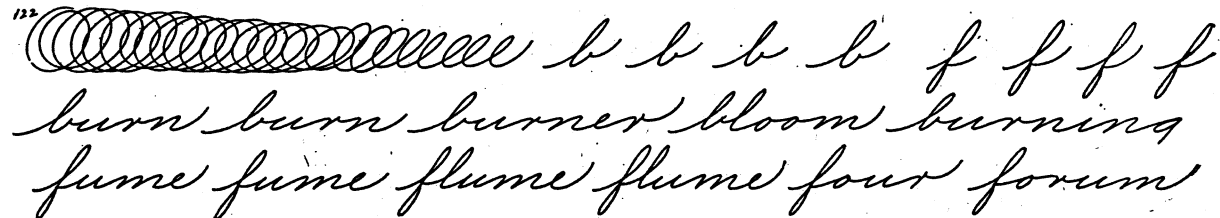 122 b b b b f f f f
burn burn burner bloom burning
fume fume flume flume four forum